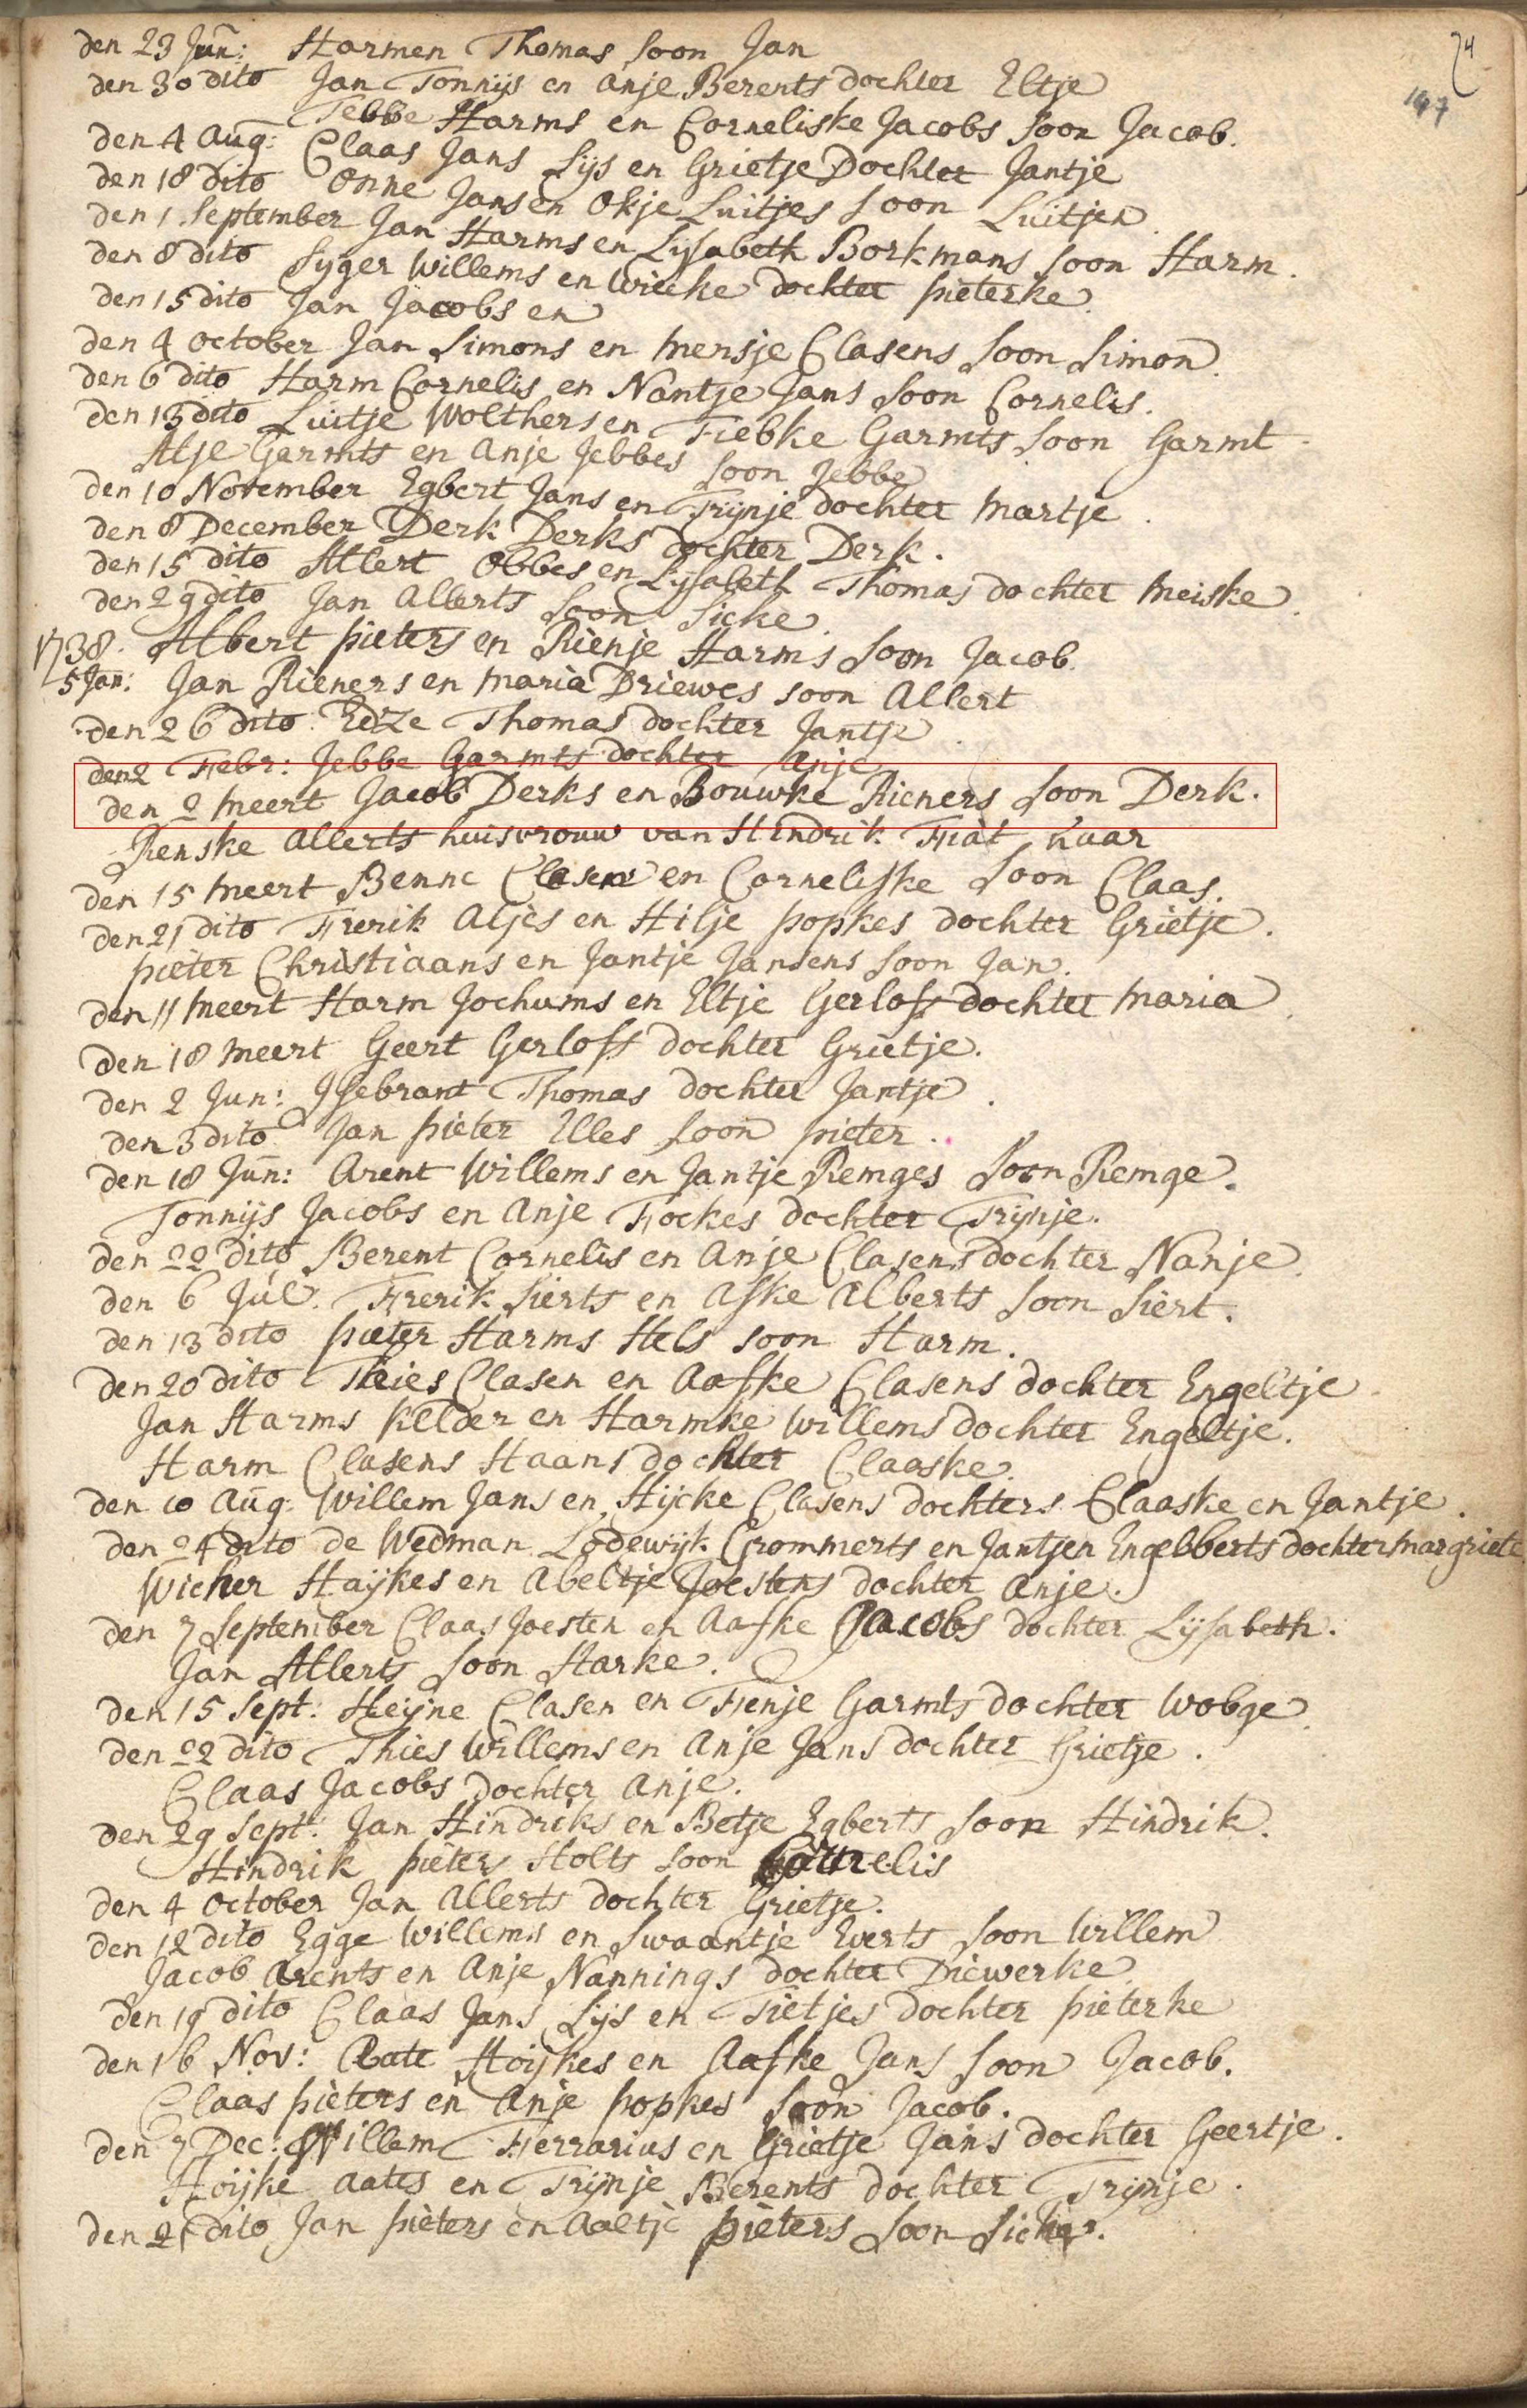 74
147
den 23 Jun: Harmen Thomas soon Jan
den 30 dito Jan Tonnijs en Anje Berents dochter Eltje
Tebbe Harms en Corneliske Jacobs soon Jacob.
den 4 Aug: Claas Jans Lijs en Grietje Dochter Jantje
den 18 dito Onne Jans en Okje Luitjes soon Luitjen.
den 1 September Jan Harms en Lijsabeth Borkmans soon Harm.
den 8 dito Syger Willems en Wieke dochter pieterke.
den 15 dito Jan Jacobs en
den 4 October Jan Simons en Mensje Clasens soon Simon.
den 6 dito Harm Cornelis en Nantje Jans soon Cornelis.
den 13 dito Luitje Wolthers en Fiebke Garmts soon Garmt.
Atje Garmts en Anje Jebbes soon Jebbe
den 10 November Egbert Jans en Trijnje dochter Martje.
den 8 December Derk Derks dochter Derk.
den 15 dito Allert Obbes en Lijsabeth Thomas dochter Meiske.
den 29 dito Jan Allerts soon Sicke.
1738. Albert pieters en Rienje Harms soon Jacob.
5 Jan: Jan Rieners en Maria Driewes soon Allert
den 26 dito Edze Thomas dochter Jantje.
den 2 Febr: Jebbe Garmts dochter Anje
den 2 Meert Jacob Derks en Bouwke Rieners soon Derk.
Renske Allerts huisvrouw van Hindrik Fiat haar
den 15 Meert Benne Clasen en Corneliske soon Claas.
den 21 dito Frerik Atjes en Hilje popkes dochter Grietje.
pieter Christiaans en Jantje Jansens soon Jan.
den 11 Meert Harm Jochums en Eltje Gerlofs dochter Maria.
den 18 Meert Geert Gerlofs dochter Grietje.
den 2 Jun: Ysebrant Thomas dochter Jantje.
den 3 dito Jan pieter Elles soon pieter.
den 18 Jun: Arent Willems en Jantje Remges soon Remge.
Tonnijs Jacobs en Anje Fockes dochter Trijnje.
den 22 dito Berent Cornelis en Anje Clasens dochter Nanje.
den 6 Jul. Frerik Sierts en Afke Alberts soon Siert.
den 13 dito pieter Harms Hels soon Harm.
den 20 dito Thies Clasen en Aafke Clasens dochter Engeltje.
Jan Harms Kelder en Harmke Willems dochter Engeltje.
Harm Clasens Haans dochter Claaske.
den 10 Aug: Willem Jans en Hijcke Clasens dochters Claaske en Jantje.
den 24 dito de Wedman Lodewijk Grommerts en Jantjen Engelberts dochter Margriete
Wicher Haijkes en Abeltje Joestens dochter Anje.
den 7 September Claas Joesten en Aafke Jacobs dochter Lijsabeth.
Jan Allerts soon Harke.
den 15 Sept: Heijne Clasen en Fienje Garmts dochter Wobge.
den 22 dito Thies Willems en Anje Jans dochter Grietje.
Claas Jacobs dochter Anje.
den 29 Sept: Jan Hindriks en Betje Egberts soon Hindrik.
Hindrik pieters Holts soon Cornelis
den 4 October Jan Allerts dochter Grietje.
den 12 dito Egge Willems en Swaantje Everts soon Willem
Jacob Arents en Anje Nannings dochter Diewerke.
den 19 dito Claas Jans Lijs en Tietjes dochter pieterke
den 16 Nov: Aate Hoijkes en Aafke Jans soon Jacob.
Claas pieters en Anje popkes soon Jacob.
den 7 Dec: Willem Ferrarius en Grietje Jans dochter Geertje.
Hoijke Aates en Trijnje Berents dochter Trijnje.
den 21 dito Jan pieters en Aaltje pieters soon